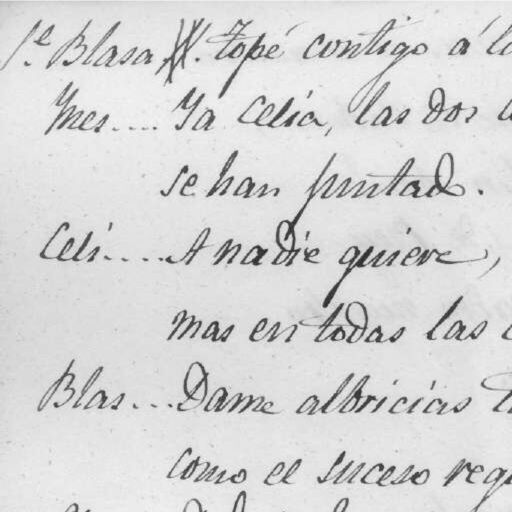 Sᵃ Blasa. Topé contigo á
Ines.... Ya Celia, las dos
se han juntado.
Celi..... A nadie quiere,
mas en todas las
Blas... Dame albricias
como el suceso